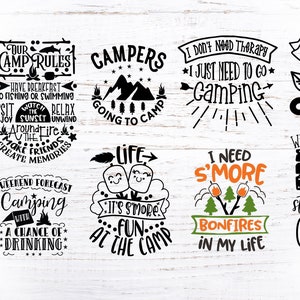 Our
Camp Rules
HAVE BREAKFAST
GO FISHING OR SWIMMING
SIT
JOY
WATCH THE
SUNSET
RELAX
UNWIND
Around The
Fire
MAKE FRIENDS
CREATE MEMORIES
CAMPERS
GOING TO CAMP
I DON'T NEED THERAPY
I JUST NEED TO GO
Camping
WEEKEND FORECAST
Camping
WITH
A CHANCE OF
DRINKING
LIFE
IT'S S'MORE
FUN
AT THE CAMP
I NEED
S'MORE
BONFIRES
IN MY LIFE